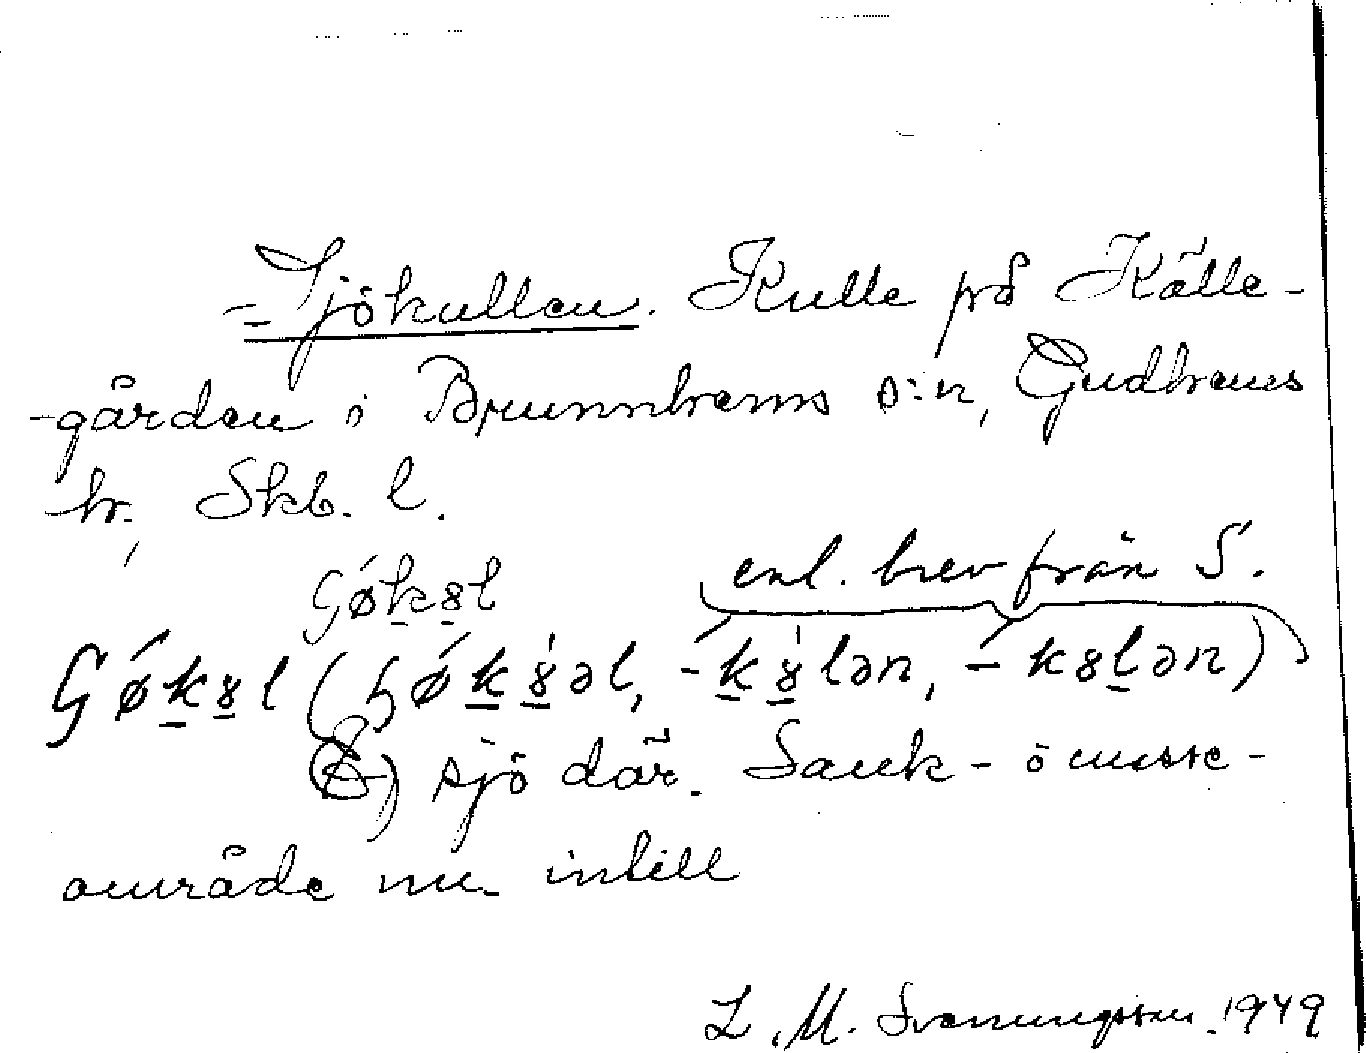 = Sjökullen. Kulle på Källe-
-gården i Brunnhems s:n, Gudhems
hr, Skb. l.
ʃǿkȣl enl. brev från S.
ʃǿkȣl (ʃǿkȣ́əl, -́kȣ́lən, -́kȣlən)
sjö där. Sank- o mosse-
område nu intill
L. M. Svanungsson 1949